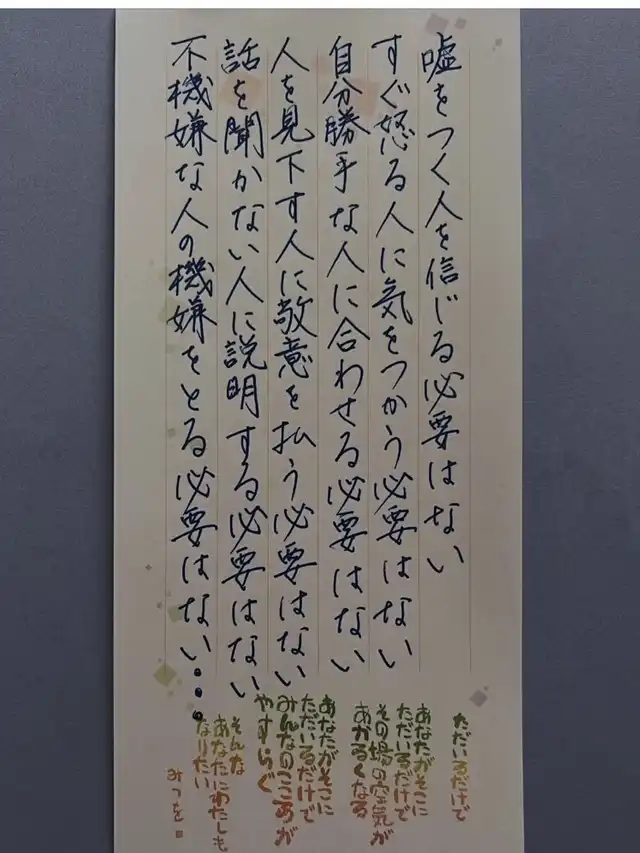 嘘をつく人を信じる必要はない
すぐ怒る人に気をつかう必要はない
自分勝手な人に合わせる必要はない
人を見下す人に敬意を払う必要はない
話を聞かない人に説明する必要はない
不機嫌な人の機嫌をとる必要はない…
ただいるだけで
あなたがそこに
ただいるだけで
その場の空気が
あかるくなる
あなたがそこに
ただいるだけで
みんなのこころが
やすらぐ
そんな
あなたにわたしも
なりたい
みつを